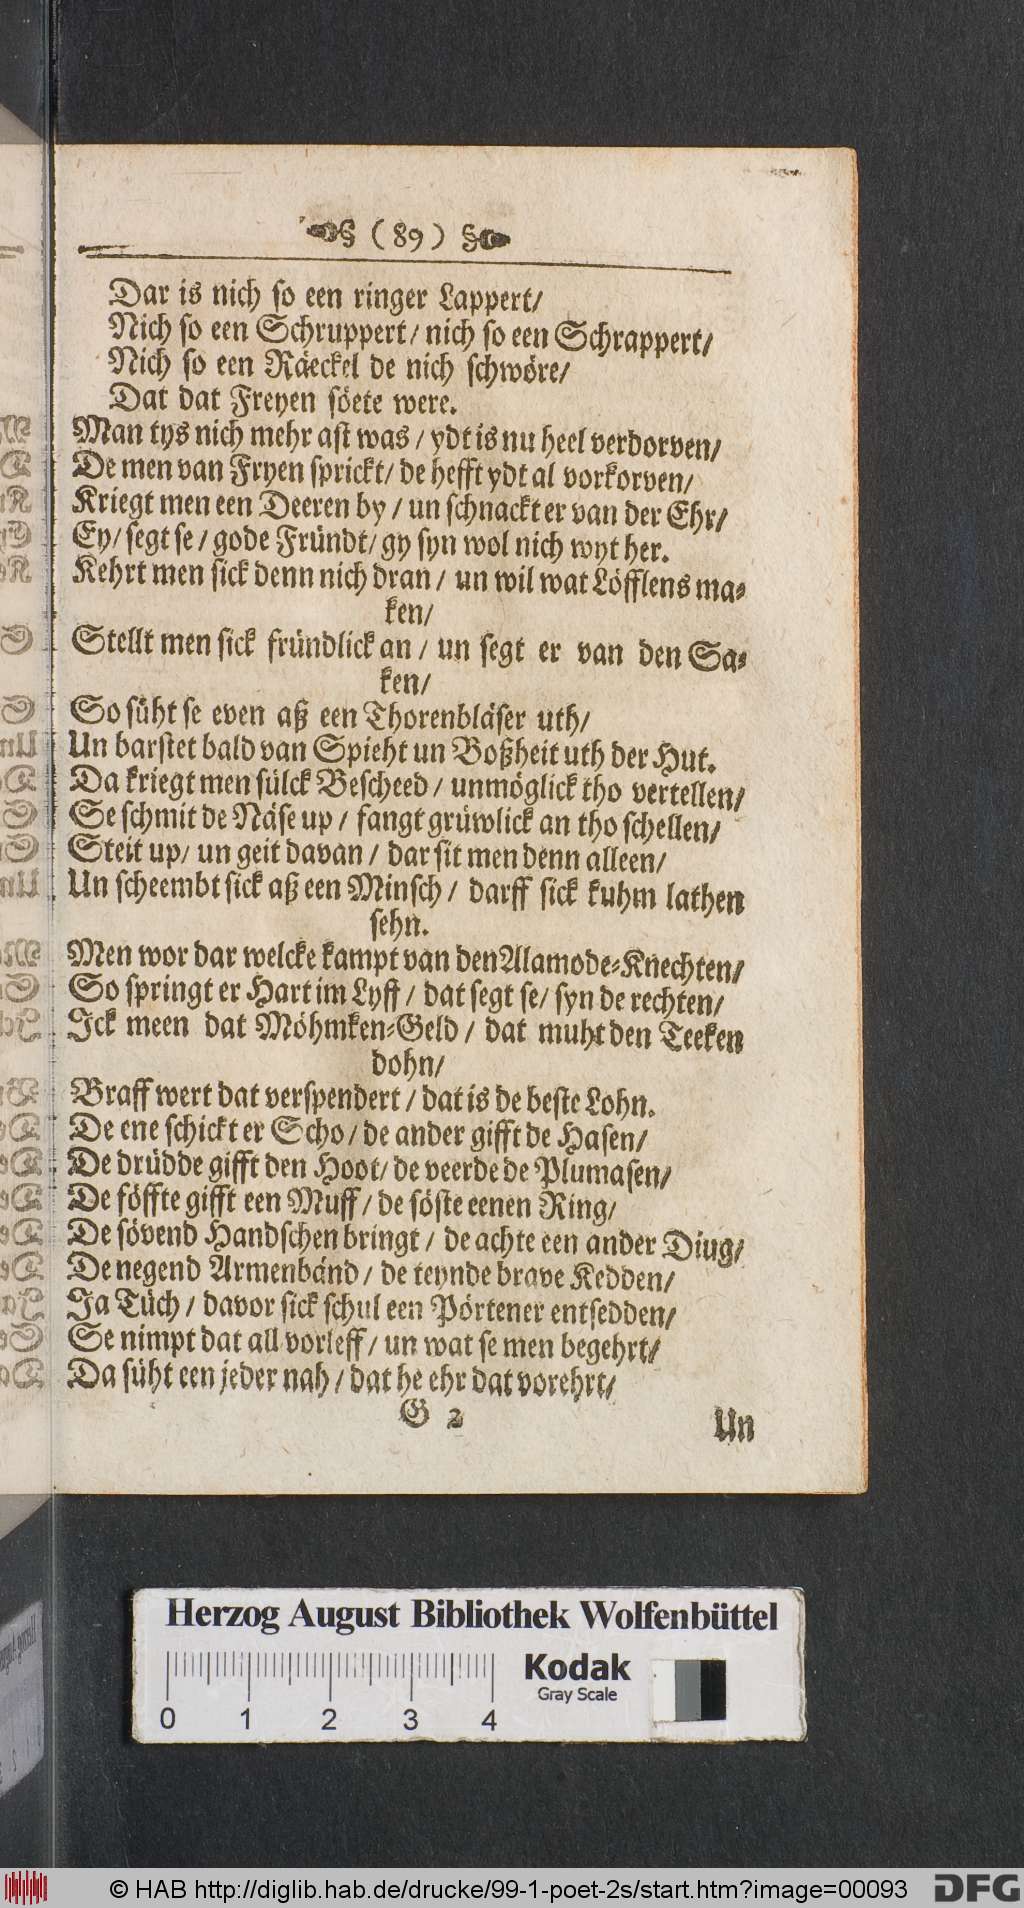 ( 89 )
Dar is nich so een ringer Lappert/
Nich so een Schruppert/ nich so een Schrappert/
Nich so een Räeckel de nich schwöre/
Dat dat Freyen söete were.
Man tys nich mehr ast was / ydt is nu heel verdorven/
De men van Fryen sprickt/ de hefft ydt al vorkorven/
Kriegt men een Deeren by / un schnackt er van der Ehr/
Ey/ segt se / gode Fründt/ gy syn wol nich wyt her.
Kehrt men sick denn nich dran / un wil wat Löfflens ma-
ken/
Stellt men sick fründlick an / un segt er van den Sa-
ken/
So süht se even aß een Thorenbläser uth/
Un barstet bald van Spieht un Boßheit uth der Hut.
Da kriegt men sülck Bescheed / unmöglick tho vertellen/
Se schmit de Näse up / fangt grüwlick an tho schellen/
Steit up/ un geit davan / dar sit men denn alleen/
Un scheembt sick aß een Minsch / darff sick kuhm lathen
sehn.
Men wor dar welcke kampt van den Alamode-Knechten/
So springt er Hart im Lyff / dat segt se/ syn de rechten/
Ick meen dat Möhmken-Geld / dat muht den Teeken
dohn/
Braff wert dat verspendert / dat is de beste Lohn.
De ene schickt er Scho / de ander gifft de Hasen/
De drüdde gifft den Hoot/ de veerde de Plumasen/
De föffte gifft een Muff / de söste eenen Ring/
De sövend Handschen bringt / de achte een ander Diug/
De negend Armenbänd / de teynde brave Kedden/
Ja Tüch / davor sick schul een Pörtener entsedden/
Se nimpt dat all vorleff / un wat se men begehrt/
Da süht een jeder nah / dat he ehr dat vorehrt/
G 2
Un
Herzog August Bibliothek Wolfenbüttel
Kodak
Gray Scale
0 1 2 3 4
© HAB http://diglib.hab.de/drucke/99-1-poet-2s/start.htm?image=00093
DFG